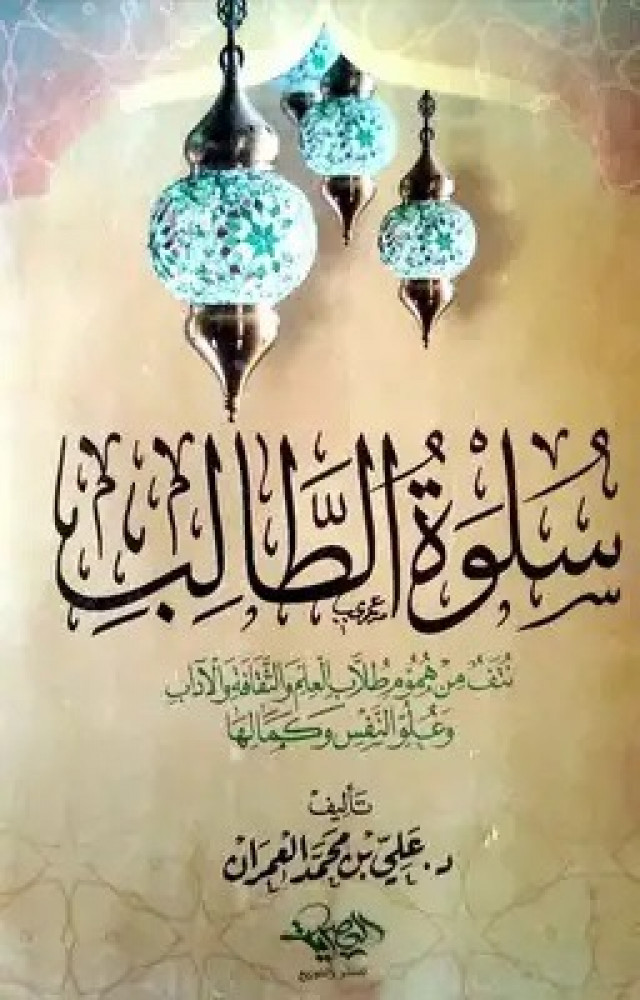 سُلْوَةُ الطَّالِبِ
نُتَفٌ مِنْ هُمُومِ طُلَّابِ الْعِلْمِ وَالثَّقَافَةِ وَالْآدَابِ
وَعُلُوِّ النَّفْسِ وَكَمَالِهَا
تَأليف
د. عَلِيّ بْن مُحَمَّد العِمْرَان
للنشر والتوزيع